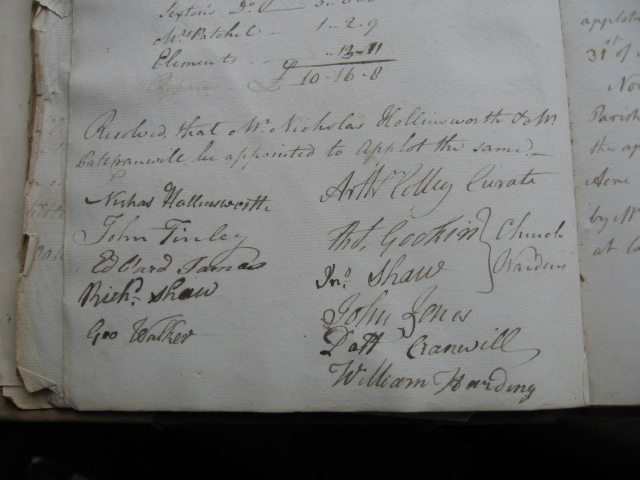 Sexton's Do
Mrs Patchel - 1-2-9
Elements - - 13-11
£ 10-16-8
Resolved, that Mr. Nicholas Hollinsworth & Mr
be appointed to applot the same.
Nichas Hollinsworth
John Tinley
Edward James
Richd. Shaw
Geo Walker
Arthr Colley Curate
Thos. Gookin } Church
Jno. Shaw } Wardens
John Jones
Patt Cranwill
William Harding
applot
31st of
Parish
the ap
alone
by M
at la